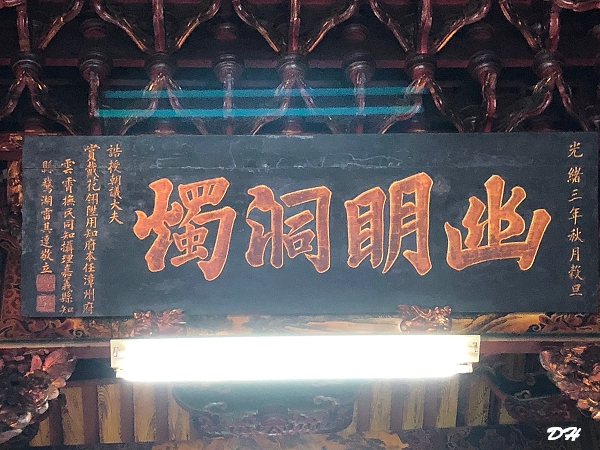 光緒三年秋月穀旦
幽明洞燭
誥授朝議大夫
賞戴花翎陞用知府本任漳州府
雲霄撫民同知攝理嘉義縣知
縣鵝湖雷其達敬立
DH